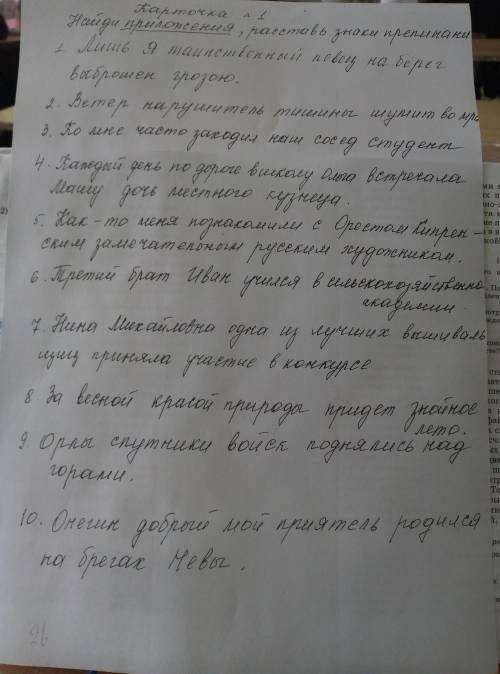 Карточка №1
Найди приложения, расставь знаки препинани
1. Лишь я таинственный певец на берег
выброшен грозою.
2. Ветер нарушитель тишины шумит во мра
3. Ко мне часто заходил наш сосед студент
4. Каждый день по дороге в школу Ольга встречала
Машу дочь местного кузнеца.
5. Как-то меня познакомили с Орестом Кипрен-
ским замечательным русским художником.
6. Третий брат Иван учился в сельскохозяйственно
академии.
7. Нина Михайловна одна из лучших вышиваль
щиц приняла участие в конкурсе
8. За весной красой природы придет знойное
лето.
9. Орлы спутники войск поднялись над
горами.
10. Онегин добрый мой приятель родился
на брегах Невы.
26